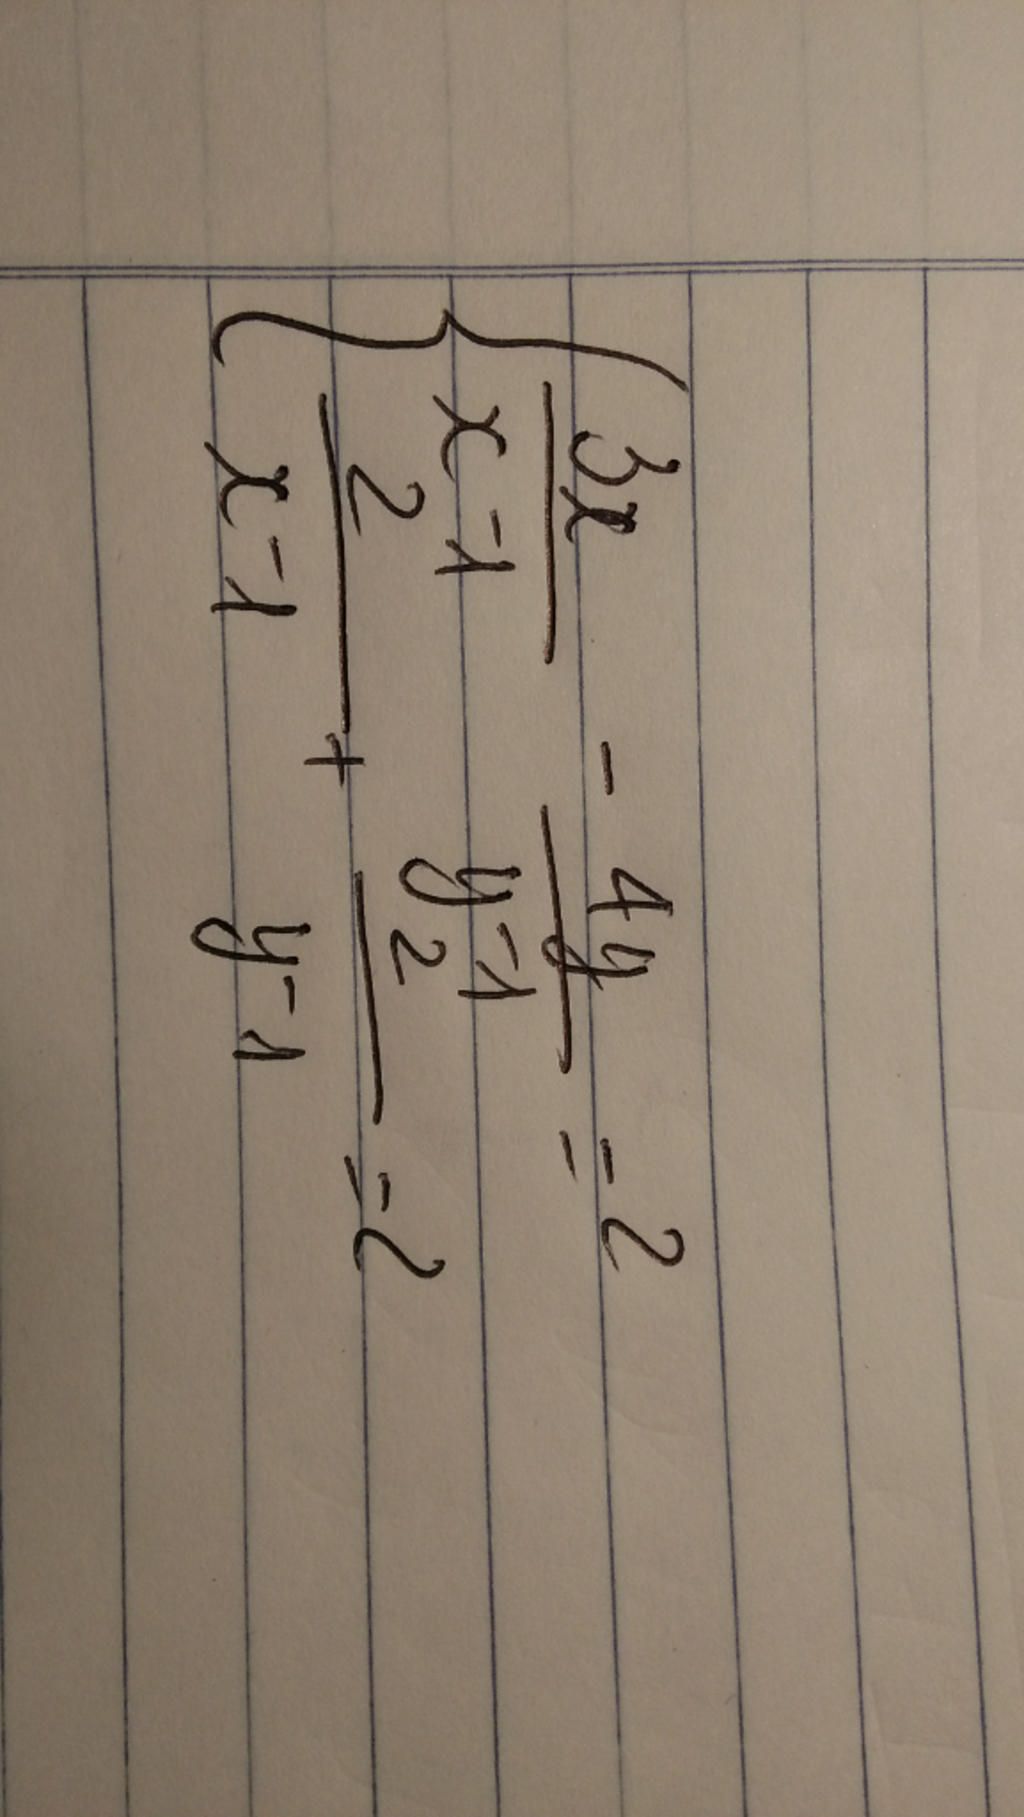 { 3x/(x-1) - 4y/(y-1) = -2
2/(x-1) + 2/(y-1) = -2